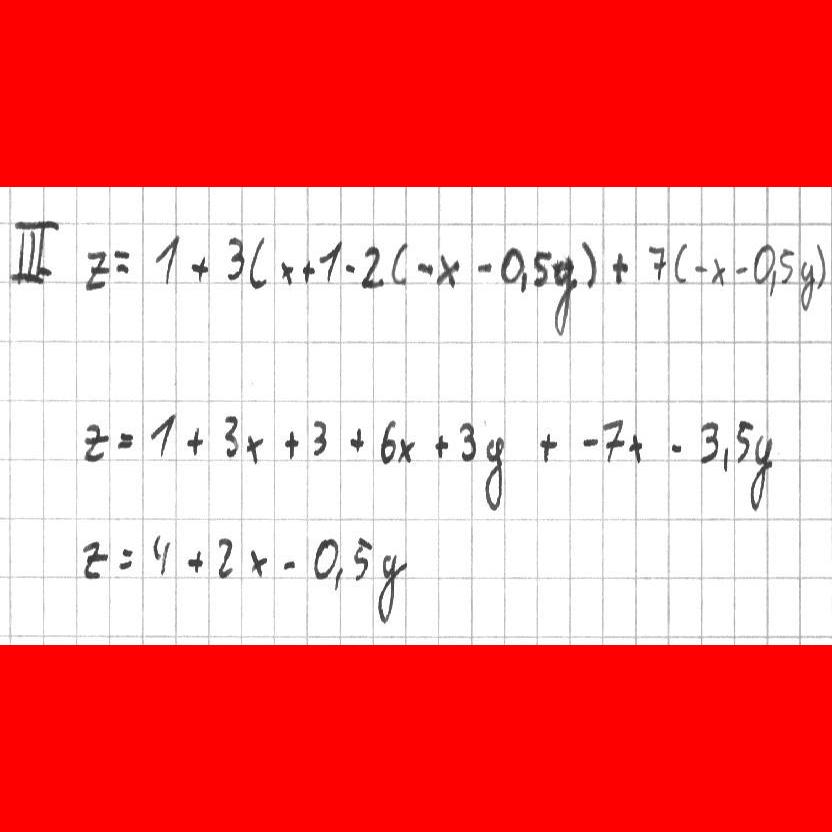 III z= 1 + 3(x+1-2(-x-0,5y) + 7(-x-0,5y)
z= 1 + 3x + 3 + 6x + 3y + -7x - 3,5y
z= 4 + 2x - 0,5y